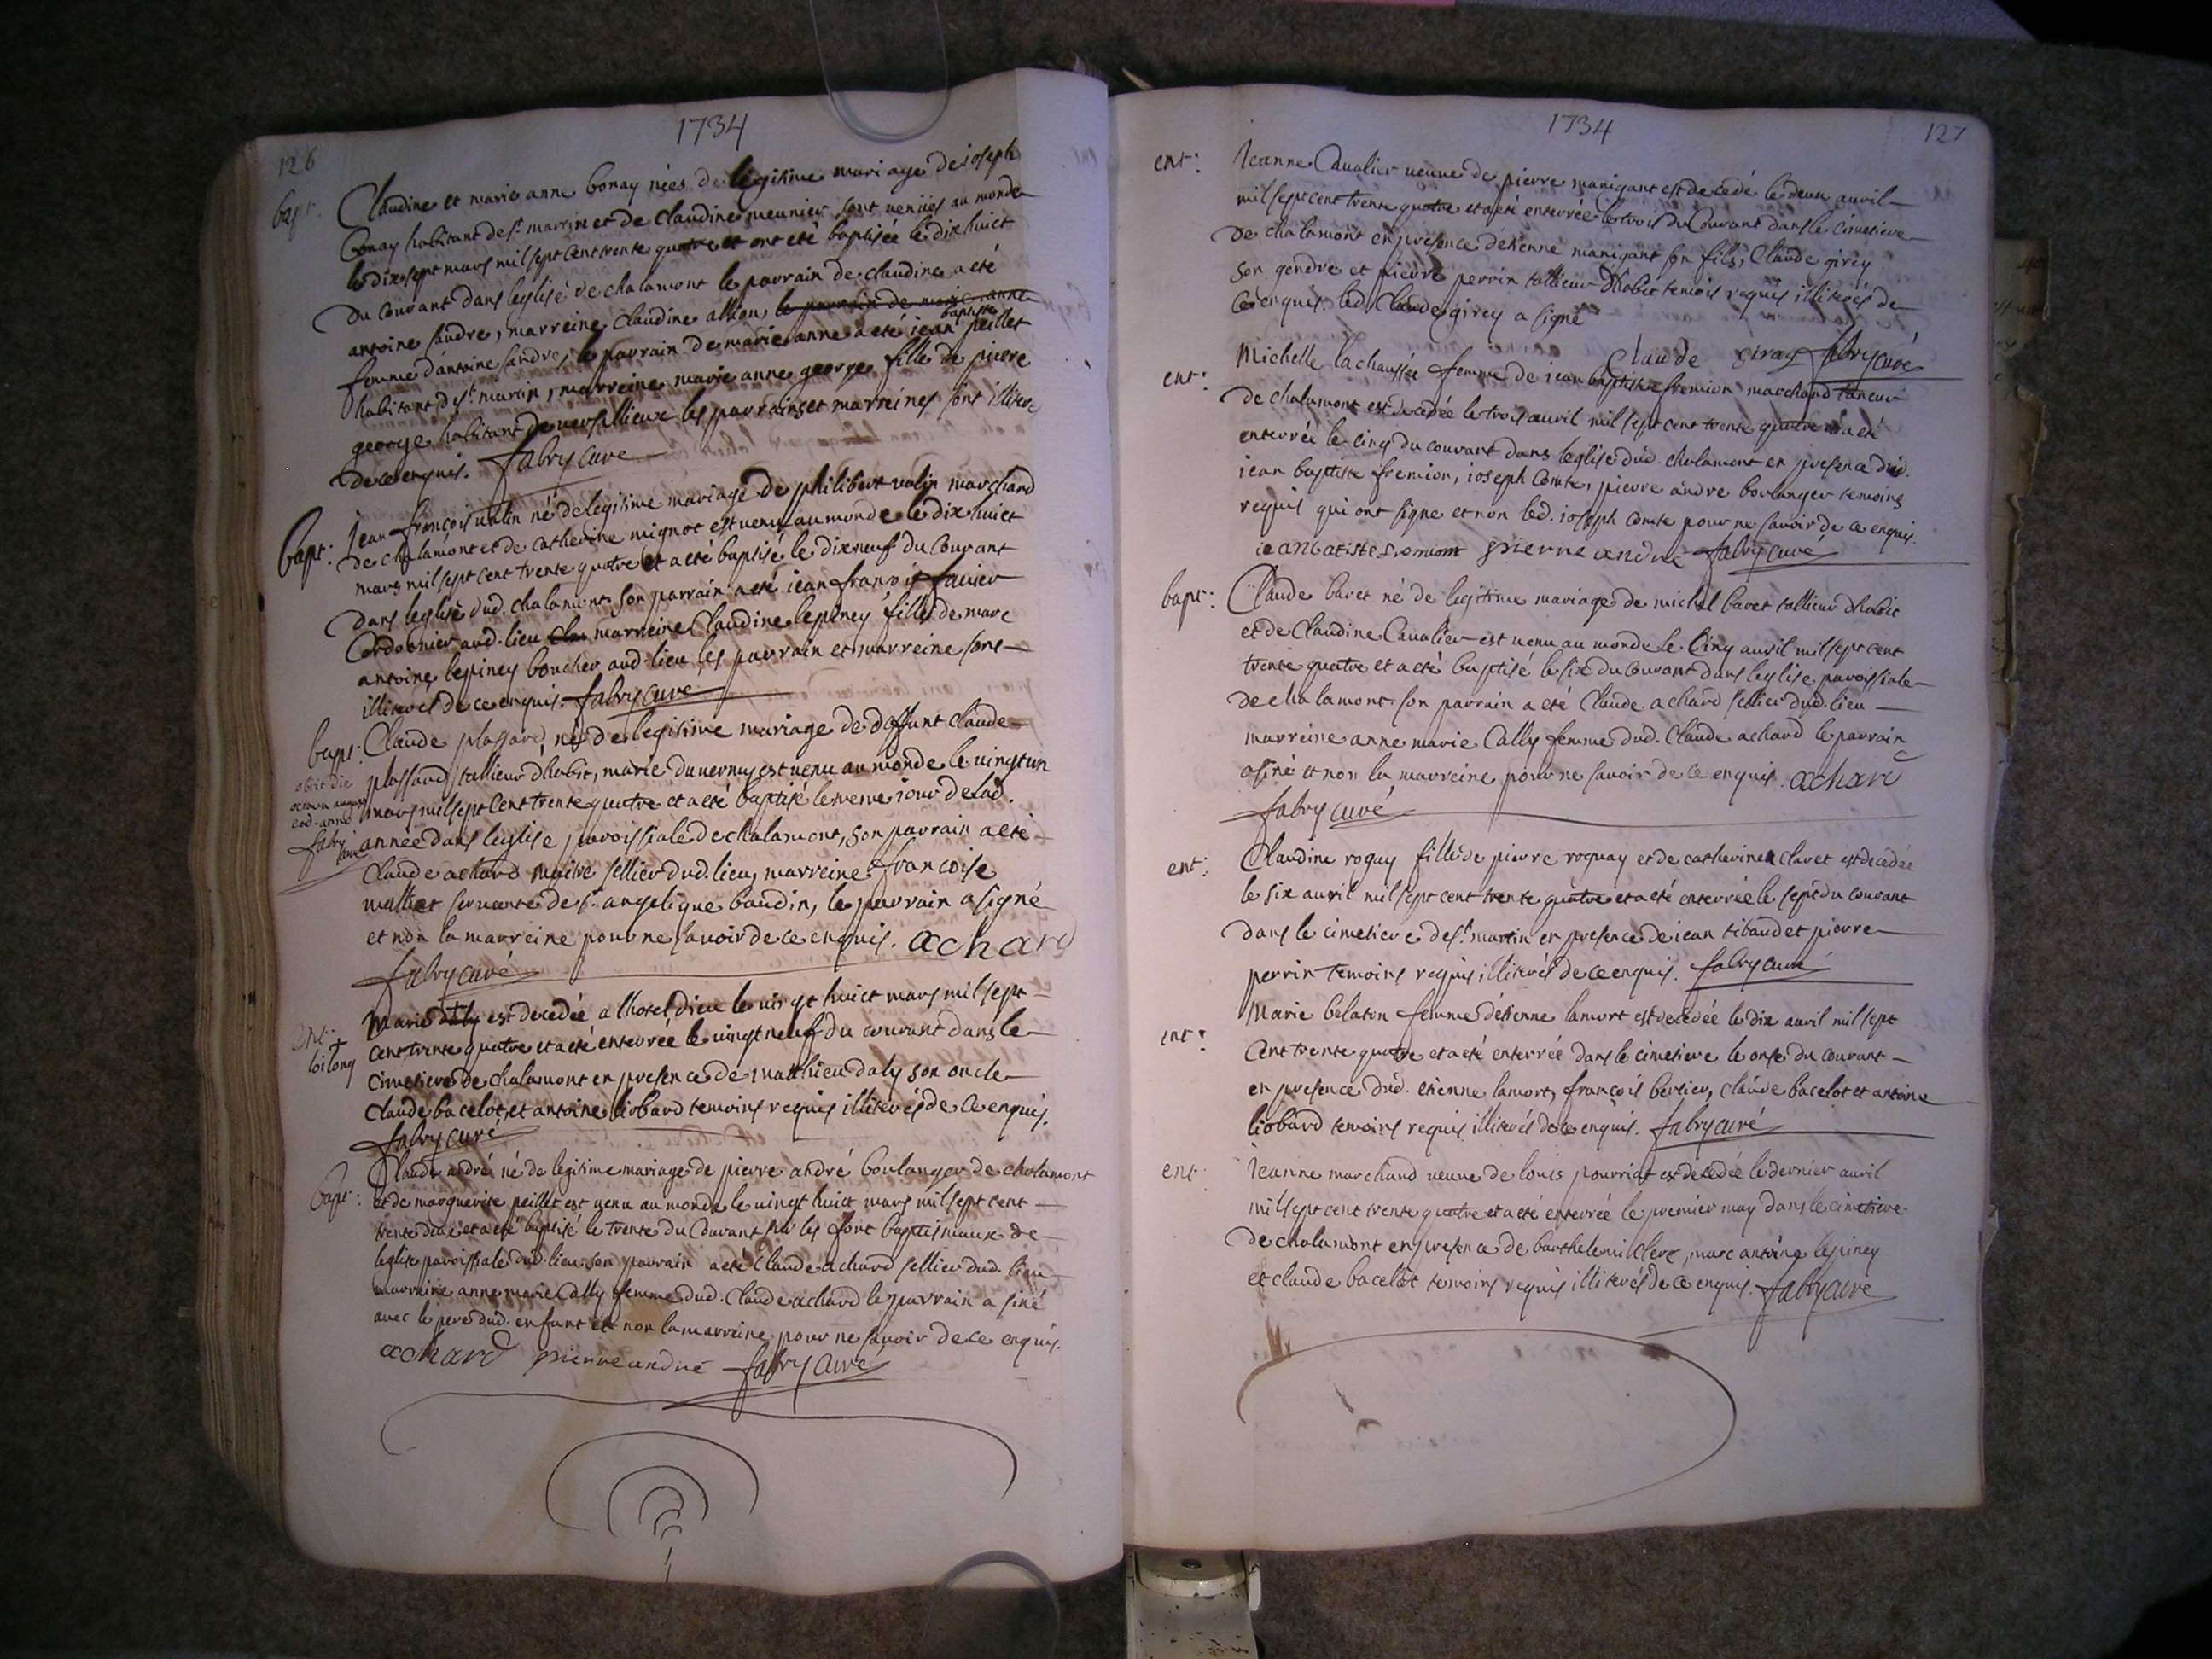 126
1734
bapt:
Claudine et marie anne bonay nées de légitime mariage de ioseph
bonay habitant de st. martin et de claudine meunier sont venües au monde
le dix sept mars mil sept cent trente quatre et ont eté baptisée le dix huict
du courant dans leglise de chalamont le parrain de claudine a eté
antoine sandre, marreine claudine allion, le parrain de marie anne
femme d'antoine sandre, le parrain de marie anne a eté iean baptiste peillet
habitant de st. martin, marreine marie anne george fille de pierre
george habitant de versallieux les parrains et marreines sont illiteré
de ce enquis. fabry curé
bapt:
Jean françois valin né de legitime mariage de philibert valin marchand
de chalamont et de catherine mignot est venu au monde le dix huict
mars mil sept cent trente quatre et a eté baptisé le dixneuf du courant
dans leglise dud. chalamont, son parrain a eté iean françois favier
Cordonnier aud. lieu marreine Claudine lepiney fille de marc
antoine lepiney boucher aud. lieu les parrain et marreine sont
illiterés de ce enquis. fabry curé
bapt:
obiit die
octava augusti
eod. anno
fabry curé
Claude plassard né de legitime mariage de deffunt claude
plassard tallieur dhabit, marie duvernay est venu au monde le vingt un
mars mil sept cent trente quatre et a eté baptisé le meme iour de lad.
année dans leglise paroissiale de chalamont, son parrain a eté
Claude achard maitre sellier dud. lieu, marreine francoise
mathet servante de sr. angelique baudin, le parrain a signé
et non la marreine pour ne savoir de ce enquis. achard
fabry curé
Marie daly est decedée a lhotel dieu le vingt huict mars mil sept
cent trente quatre et a eté enterrée le vingt neuf du courant dans le
cimetiere de chalamont en presence de matthieu daly son oncle
Claude bacelot, et antoine liobard temoins requis illiterés de ce enquis.
fabry curé
bapt:
Claude andré né de legitime mariage de pierre andré boulanger de chalamont
et de marguerite peillet est venu au monde le vingt huict mars mil sept cent
trente deux et a eté baptisé le trente du Courant sur les font baptismaux de
leglise paroissiale dud. lieu son parrain a eté Claude achard sellier dud. lieu
marreine anne marie Cally femme dud. Claude achard le parrain a siné
avec le pere dud. enfant et non la marreine pour ne savoir de ce enquis.
achard pierre andré fabry curé
1734
127
ent:
Jeanne Cavalier veuve de pierre manigant est decedé le deux avril
mil sept cent trente quatre et a eté enterrée le trois du Courant dans le cimetiere
de chalamont en presence detienne manigant son fils, Claude girey
son gendre et pierre perrin tallieur dhabit temois requis illiterés de
ce enquis. led. Claude girey a signé
Claude Giray fabry curé
ent:
Michelle lachaussée femme de iean baptiste fremion marchand taneur
de chalamont est decedée le trois avril mil sept cent trente quatre et a eté
enterrée le cinq du courant dans leglise dud. chalamont en presence dud.
iean baptiste fremion, ioseph Comte, pierre andre boulanger temoins
requis qui ont signe et non led. ioseph Comte pour ne savoir de ce enquis.
ieanbatiste fremiont pierre andre fabry curé
bapt:
Claude bavet né de legitime mariage de michel bavet tallieur dhabit
et de Claudine Cavalier est venu au monde le cinq avril mil sept cent
trente quatre et a eté baptisé le six du courant dans leglise paroissiale
de chalamont son parrain a eté Claude achard sellier dud. lieu
marreine anne marie Cally femme dud. Claude achard le parrain
a siné et non la marreine pour ne savoir de ce enquis. achard
fabry curé
ent:
Claudine roguy fille de pierre roguay et de catherine clavet est decedée
le six avril mil sept cent trente quatre et a eté enterrée le sept du courant
dans le cimetiere de st. martin en presence de iean tibaud et pierre
perrin temoins requis illiterés de ce enquis. fabry curé
ent:
Marie belaton femme detienne lamort est decedée le dix avril mil sept
Cent trente quatre et a eté enterrée dans le cimetiere le onse du courant
en presence dud. etienne lamort, françois berlier, claude bacelot et antoine
liobard temoins requis illiterés de ce enquis. fabry curé
ent:
Jeanne marchand veuve de louis pourriat est decedée le dernier avril
mil sept cent trente quatre et a eté enterrée le premier may dans le cimetiere
de chalamont en presence de barthelemi clerc, marc antoine lepiney
et claude bacelot temoins requis illiterés de ce enquis. fabry curé